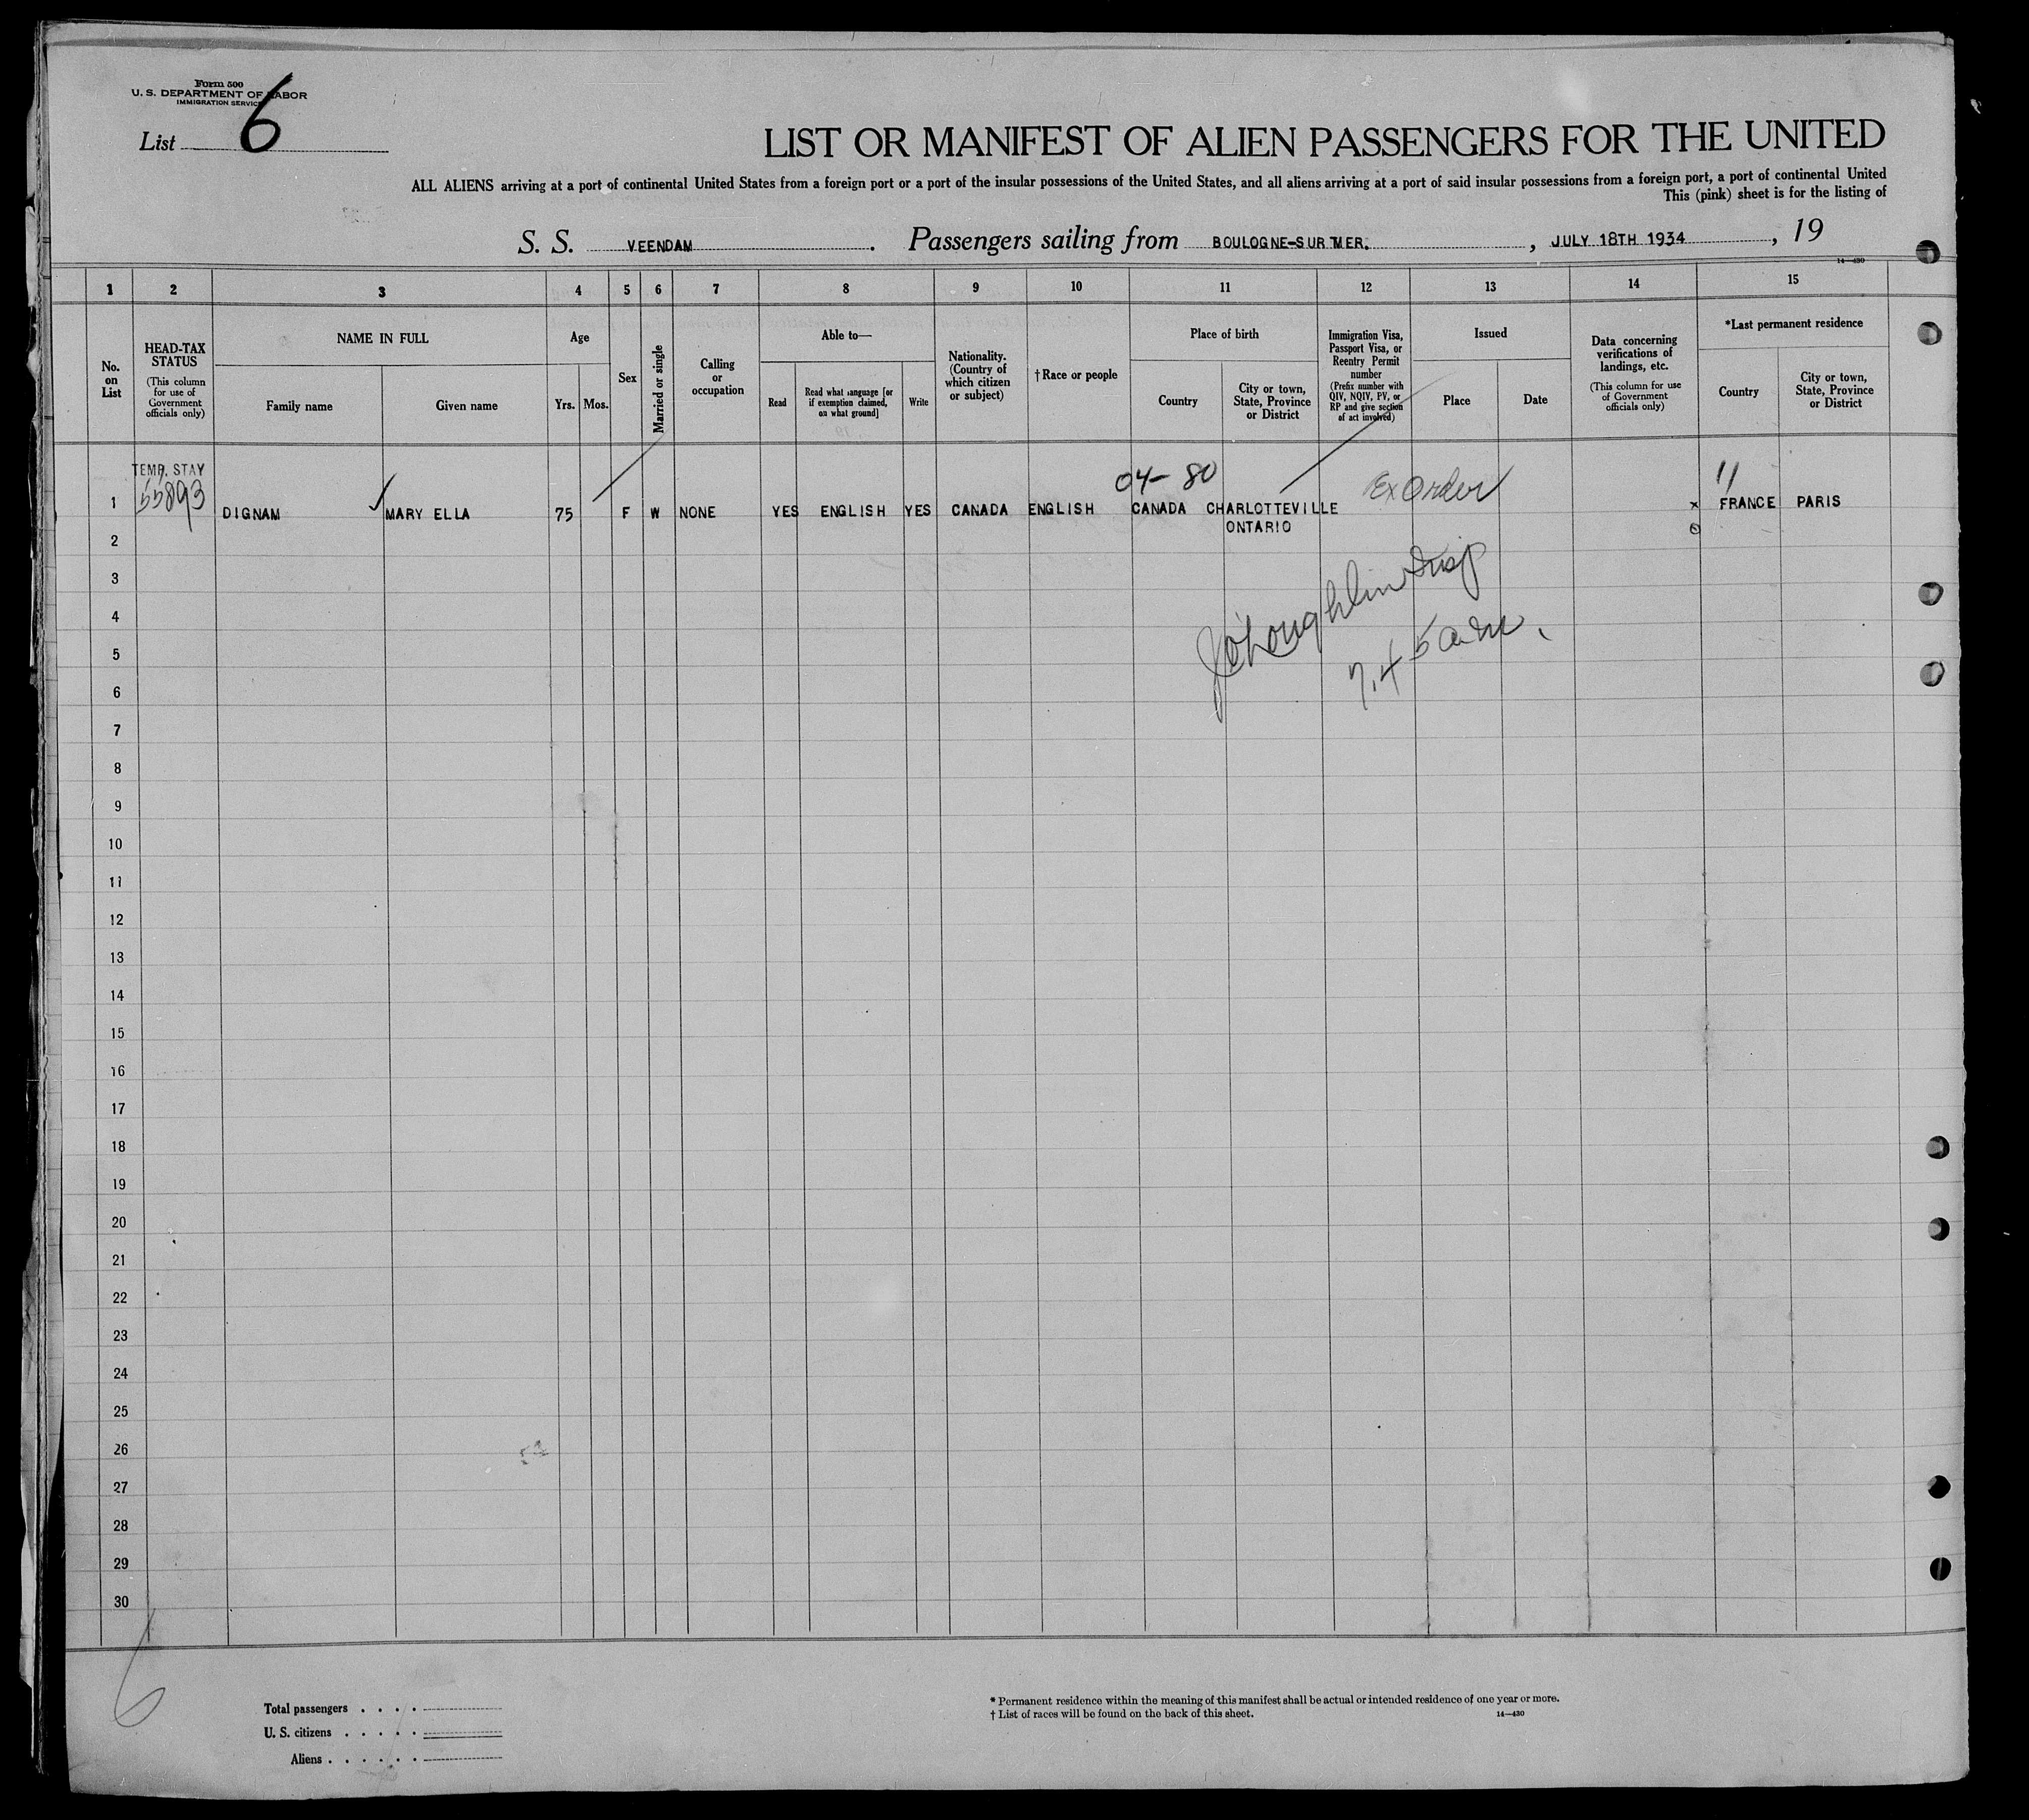 Form 500
U. S. DEPARTMENT OF LABOR
IMMIGRATION SERVICE
List 6
LIST OR MANIFEST OF ALIEN PASSENGERS FOR THE UNITED
ALL ALIENS arriving at a port of continental United States from a foreign port or a port of the insular possessions of the United States, and all aliens arriving at a port of said insular possessions from a foreign port, a port of continental United
This (pink) sheet is for the listing of
S. S. VEENDAM. Passengers sailing from BOULOGNE-SUR MER. , JULY 18TH 1934 , 19
14—430
1 2 3 4 5 6 7 8 9 10 11 12 13 14 15
No. on List
HEAD-TAX STATUS
(This column for use of Government officials only)
NAME IN FULL
Family name
Given name
Age
Yrs. Mos.
Sex
Married or single
Calling or occupation
Able to—
Read
Read what language [or if exemption claimed, on what ground]
Write
Nationality. (Country of which citizen or subject)
†Race or people
Place of birth
Country
City or town, State, Province or District
Immigration Visa, Passport Visa, or Reentry Permit number
(Prefix number with QIV, NQIV, PV, or RP and give section of act involved)
Issued
Place
Date
Data concerning verifications of landings, etc.
(This column for use of Government officials only)
*Last permanent residence
Country
City or town, State, Province or District
TEMP. STAY
04-80
11
1 55893 DIGNAM MARY ELLA 75 F W NONE YES ENGLISH YES CANADA ENGLISH CANADA CHARLOTTEVILLE Ex Order x FRANCE PARIS
ONTARIO
2
3
J O'Loughlin Insp
4
7.45 am.
5
6
7
8
9
10
11
12
13
14
15
16
17
18
19
20
21
22
23
24
25
26
27
28
29
30
6
Total passengers . . . .
U. S. citizens . . . . .
Aliens . . . . . .
* Permanent residence within the meaning of this manifest shall be actual or intended residence of one year or more.
† List of races will be found on the back of this sheet.
14—430